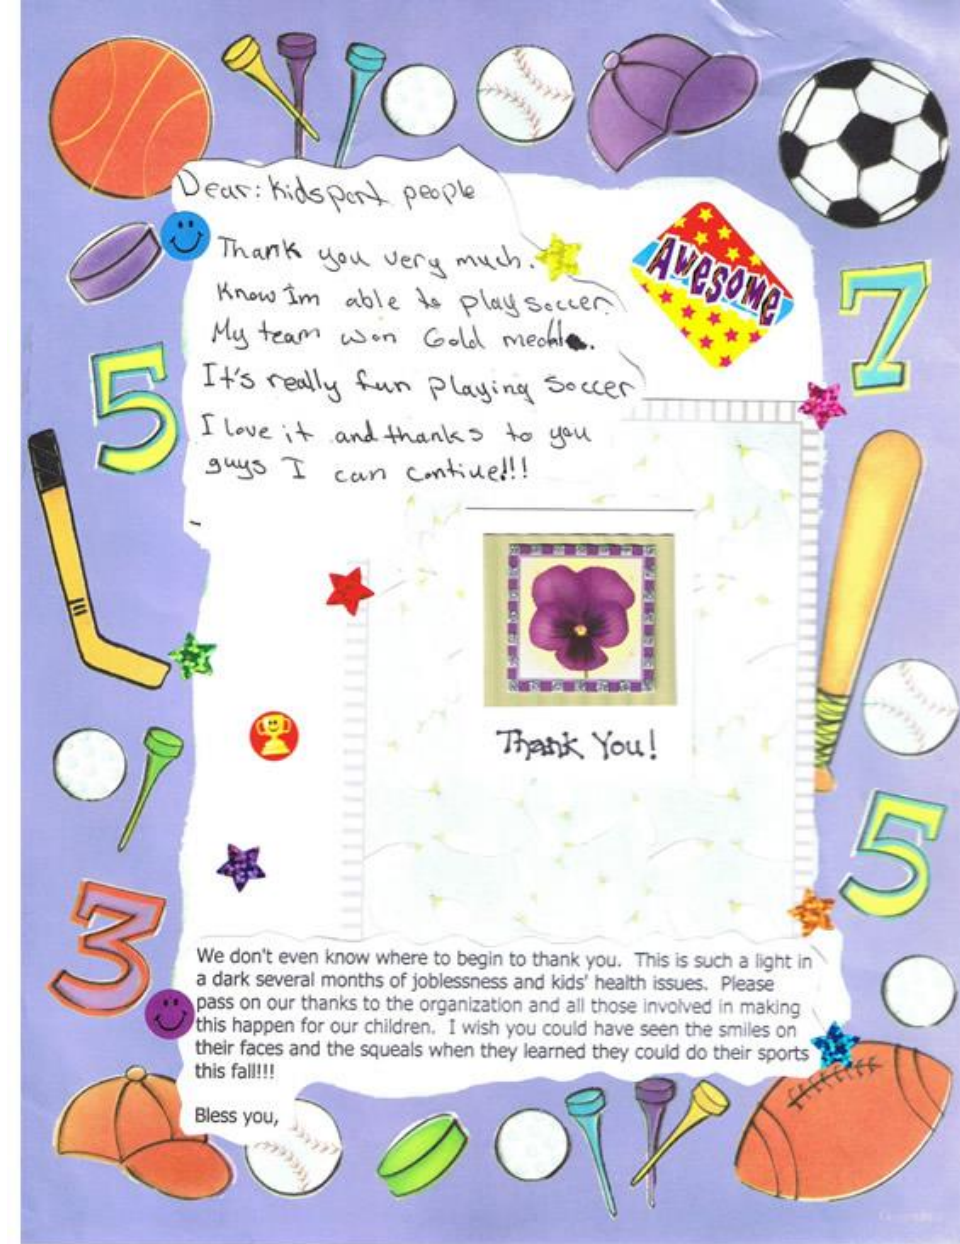 Dear: Kidsport people
Thank you very much.
Know Im able to play soccer.
My team won Gold
It's really fun playing Soccer
I love it and thanks to you
guys I can contiue!!!
AWESOME
7
5
Thank You!
5
3
We don't even know where to begin to thank you. This is such a light in
a dark several months of joblessness and kids' health issues. Please
pass on our thanks to the organization and all those involved in making
this happen for our children. I wish you could have seen the smiles on
their faces and the squeals when they learned they could do their sports
this fall!!!
Bless you,